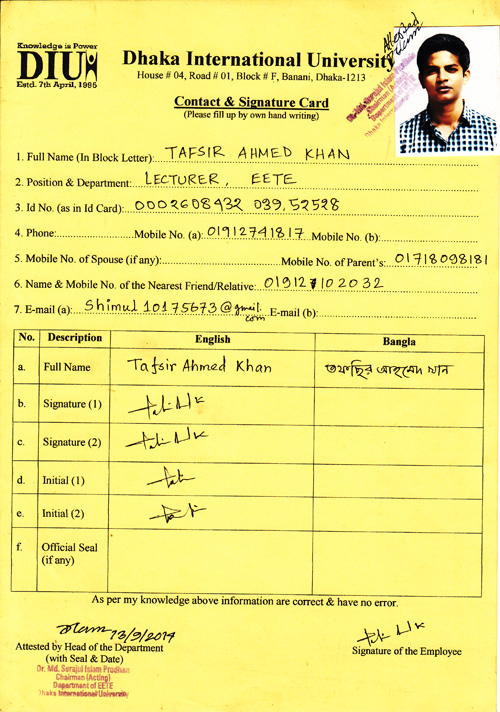 Knowledge is Power
DIU
Estd. 7th April, 1995
Dhaka International University
House # 04, Road # 01, Block # F, Banani, Dhaka-1213
Contact & Signature Card
(Please fill up by own hand writing)
Attested
Dr. Md. Serajul Islam Prodhan
Chairman (Acting)
Department of EETE
Dhaka International University
1. Full Name (In Block Letter): TAFSIR AHMED KHAN
2. Position & Department: LECTURER, EETE
3. Id No. (as in Id Card): 0002608432 039,52528
4. Phone: Mobile No. (a): 01912741817 Mobile No. (b):
5. Mobile No. of Spouse (if any): Mobile No. of Parent's: 01718098181
6. Name & Mobile No. of the Nearest Friend/Relative: 01912102032
7. E-mail (a): Shimul10175673@gmail.com E-mail (b):
No. Description English Bangla
a. Full Name Tafsir Ahmed Khan তফছির আহমেদ খান
b. Signature (1)
c. Signature (2)
d. Initial (1)
e. Initial (2)
f. Official Seal
(if any)
As per my knowledge above information are correct & have no error.
13/9/2014
Attested by Head of the Department
(with Seal & Date)
Signature of the Employee
Dr. Md. Serajul Islam Prodhan
Chairman (Acting)
Department of EETE
Dhaka International University